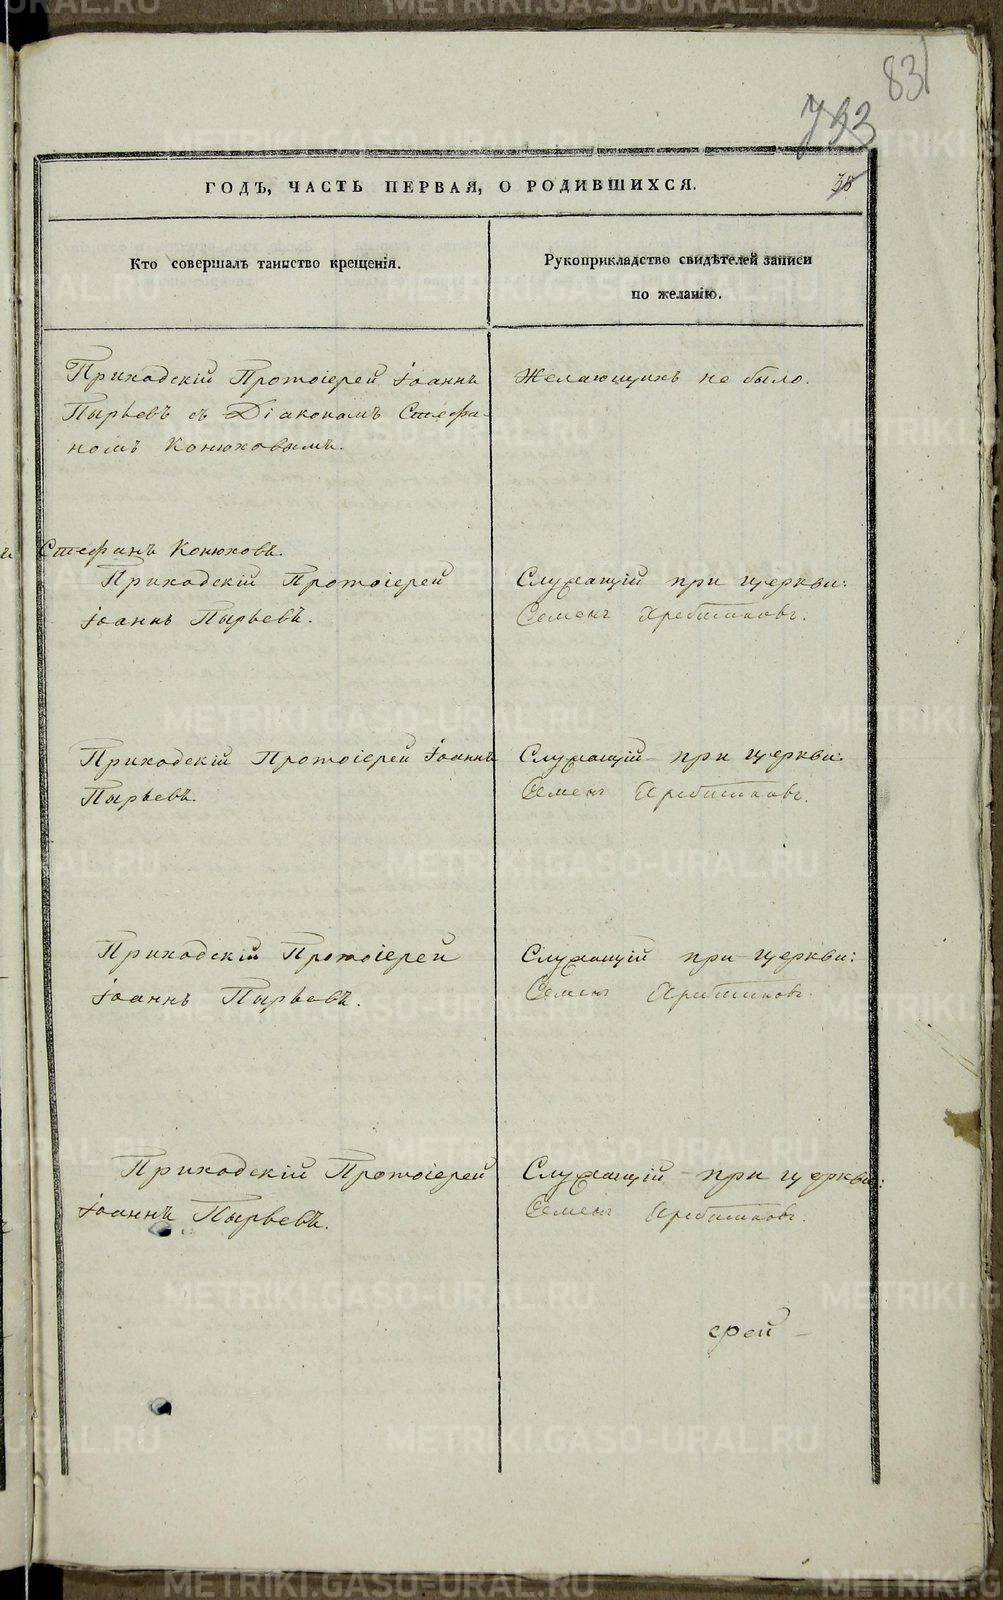 831
793
38
ГОДЪ, ЧАСТЬ ПЕРВАЯ, О РОДИВШИХСЯ.
Кто совершалъ таинство крещенія.
Рукоприкладство свидѣтелей записи
по желанію.
Приходскій Протоіерей Іоаннъ
Пырьевъ съ Діакономъ Стефа-
номъ Конюховымъ.
Желающихъ не было.
Стефанъ Конюховъ.
Приходскій Протоіерей
Іоаннъ Пырьевъ.
Служащій при церкви:
Семенъ Хребтиковъ.
Приходскій Протоіерей Іоаннъ
Пырьевъ.
Служащій при церкви:
Семенъ Хребтиковъ.
Приходскій Протоіерей
Іоаннъ Пырьевъ.
Служащій при церкви:
Семенъ Хребтиковъ.
Приходскій Протоіерей
Іоаннъ Пырьевъ.
Служащій при церкви:
Семенъ Хребтиковъ.
ерей
METRIKI.GASO-URAL.RU